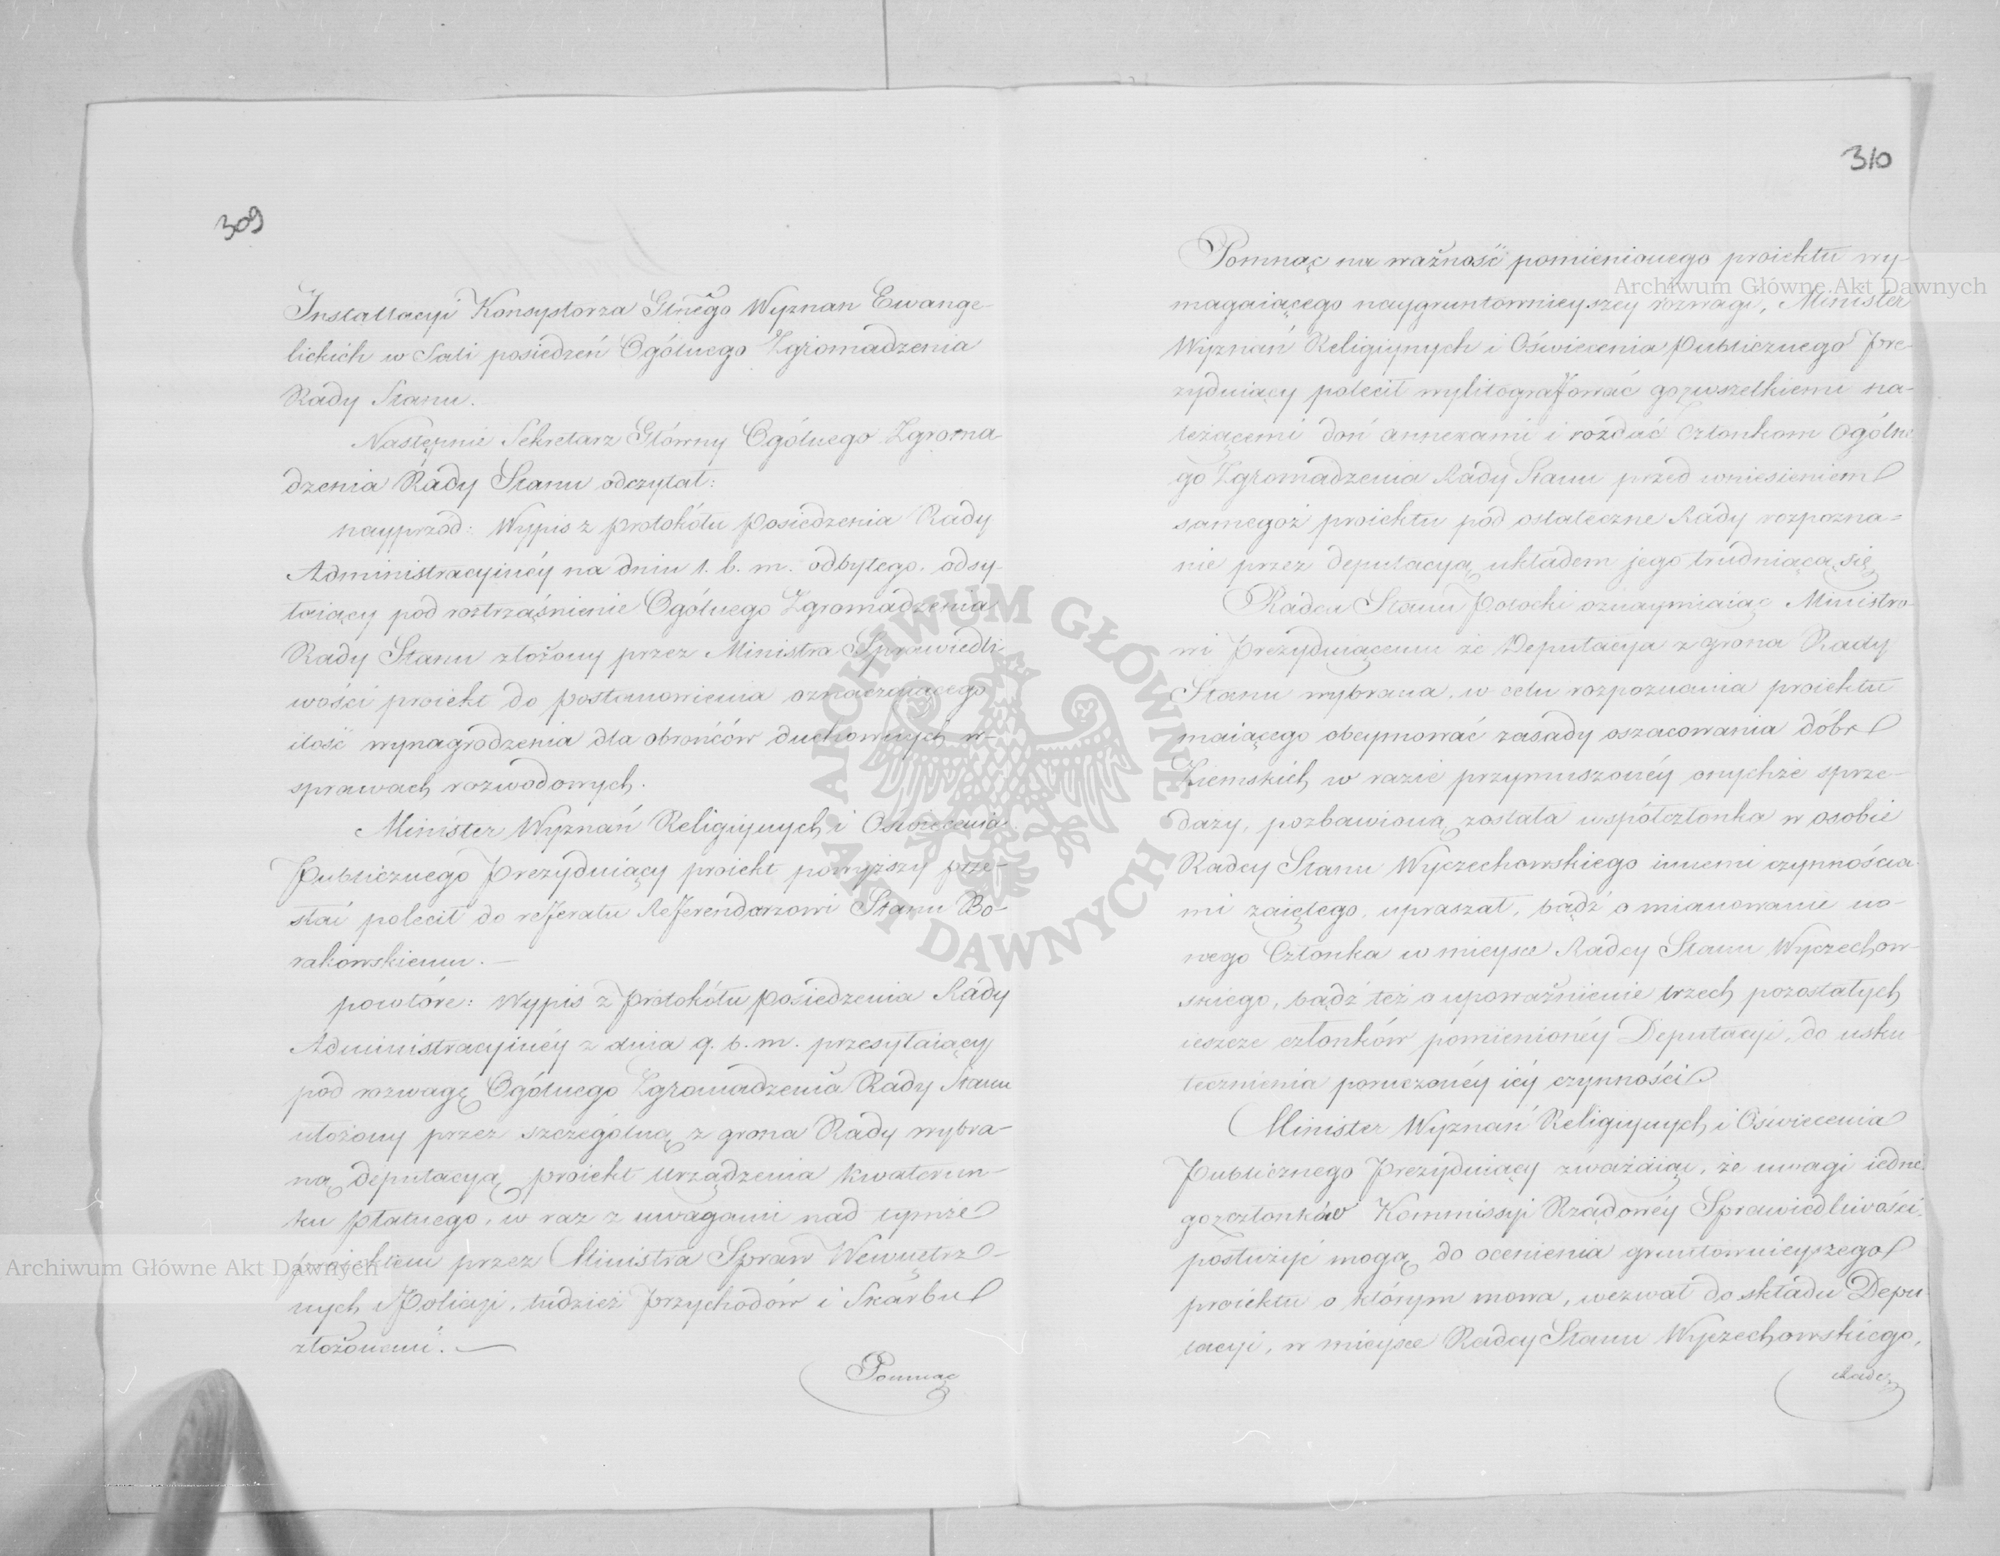 309
Installacyi Konsystorza Glnego Wyznan Ewange-
lickich w Sali posiedzeń Ogólnego Zgromadzenia
Rady Stanu.
Następnie Sekretarz Główny Ogólnego Zgroma-
dzenia Rady Stanu odczytał:
nayprzód: Wypis z protokółu posiedzenia Rady
Administracyinéy na dniu 1. b. m. odbytego. odsy-
łaiący pod roztrząśnienie Ogólnego Zgromadzenia
Rady Stanu złożony przez Ministra Sprawiedli
wości proiekt do postanowienia oznaczaiącego
ilość wynagrodzenia dla obrońców duchownych w-
sprawach rozwodowych.
Minister Wyznań Religiynych i Oświecenia
Publicznego Prezyduiący proiekt powyższy prze-
słać polecił do refferatu Refferendarzowi Stanu Bo-
rakowskiemu. —
powtóre: Wypis z Protokółu posiedzenia Rady
Administracyinéy z dnia 9. b. m. przesyłaiący
pod rozwagę Ogólnego Zgromadzenia Rady Stanu
ułożony przez szczególną z grona Rady wybra-
ną deputacyą proiekt urządzenia kwaterun-
ku płatnego, w raz z uwagami nad tymże
proiektem przez Ministra Spraw Wewnętrz-
nych i Policyi, tudzież Przychodów i Skarbu
złożonemi. —
Pomnąc
310
Pomnąc na ważność pomienionego proiektu wy-
magaiącego naygruntownieyszey rozwagi, Minister
Wyznań Religiynych i Oświecenia Publicznego Pre-
zyduiący polecił wylitografować go z wszelkiemi na-
leżącemi doń annexami i rozdać Członkom Ogólne
go Zgromadzenia Rady Stanu przed wniesieniem
samegoż proiektu pod ostateczne Rady rozpozna-
nie przez deputacyą układem jego trudniącą się
Radca Stanu Potocki oznaymiaiąc Ministro-
wi Prezyduiącemu że Deputacya z grona Rady
Stanu wybrana, w celu rozpoznania proiektu
maiącego obeymować zasady oszacowania dóbr
Ziemskich, w razie przymuszonéy onychże sprze-
daży, pozbawioną została współczłonka w osobie
Radcy Stanu Wyczechowskiego innemi czynnościa-
mi zaiętego, upraszał, bądź o mianowanie no-
wego Członka w mieysce Radcy Stanu Wyczechow-
skiego, bądź też o upoważnienie trzech pozostałych
ieszcze członków pomienionéy Deputacyi, do usku
tecznienia poruczonéy iéy czynności
Minister Wyznań Religiynych i Oświecenia
Publicznego Prezyduiący zważaiąc, że uwagi iedne
go z członków Kommissyi Rządowéy Sprawiedliwości,
posłużyć mogą do ocenienia gruntownieyszego
proiektu o którym mowa, wezwał do składu Depu
tacyi, w mieysce Radcy Stanu Wyczechowskiego,
Radcę
Archiwum Główne Akt Dawnych
Archiwum Główne Akt Dawnych
ARCHIWUM GŁÓWNE AKT DAWNYCH